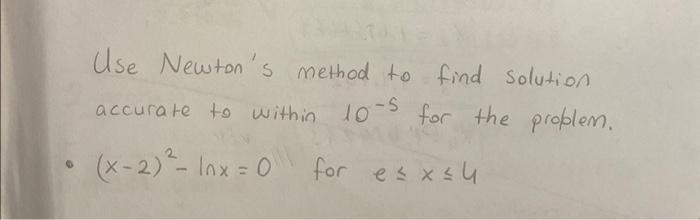 Use Newton's method to find solution
accurate to within 10⁻⁵ for the problem.
• (x-2)² - lnx = 0 for e ≤ x ≤ 4